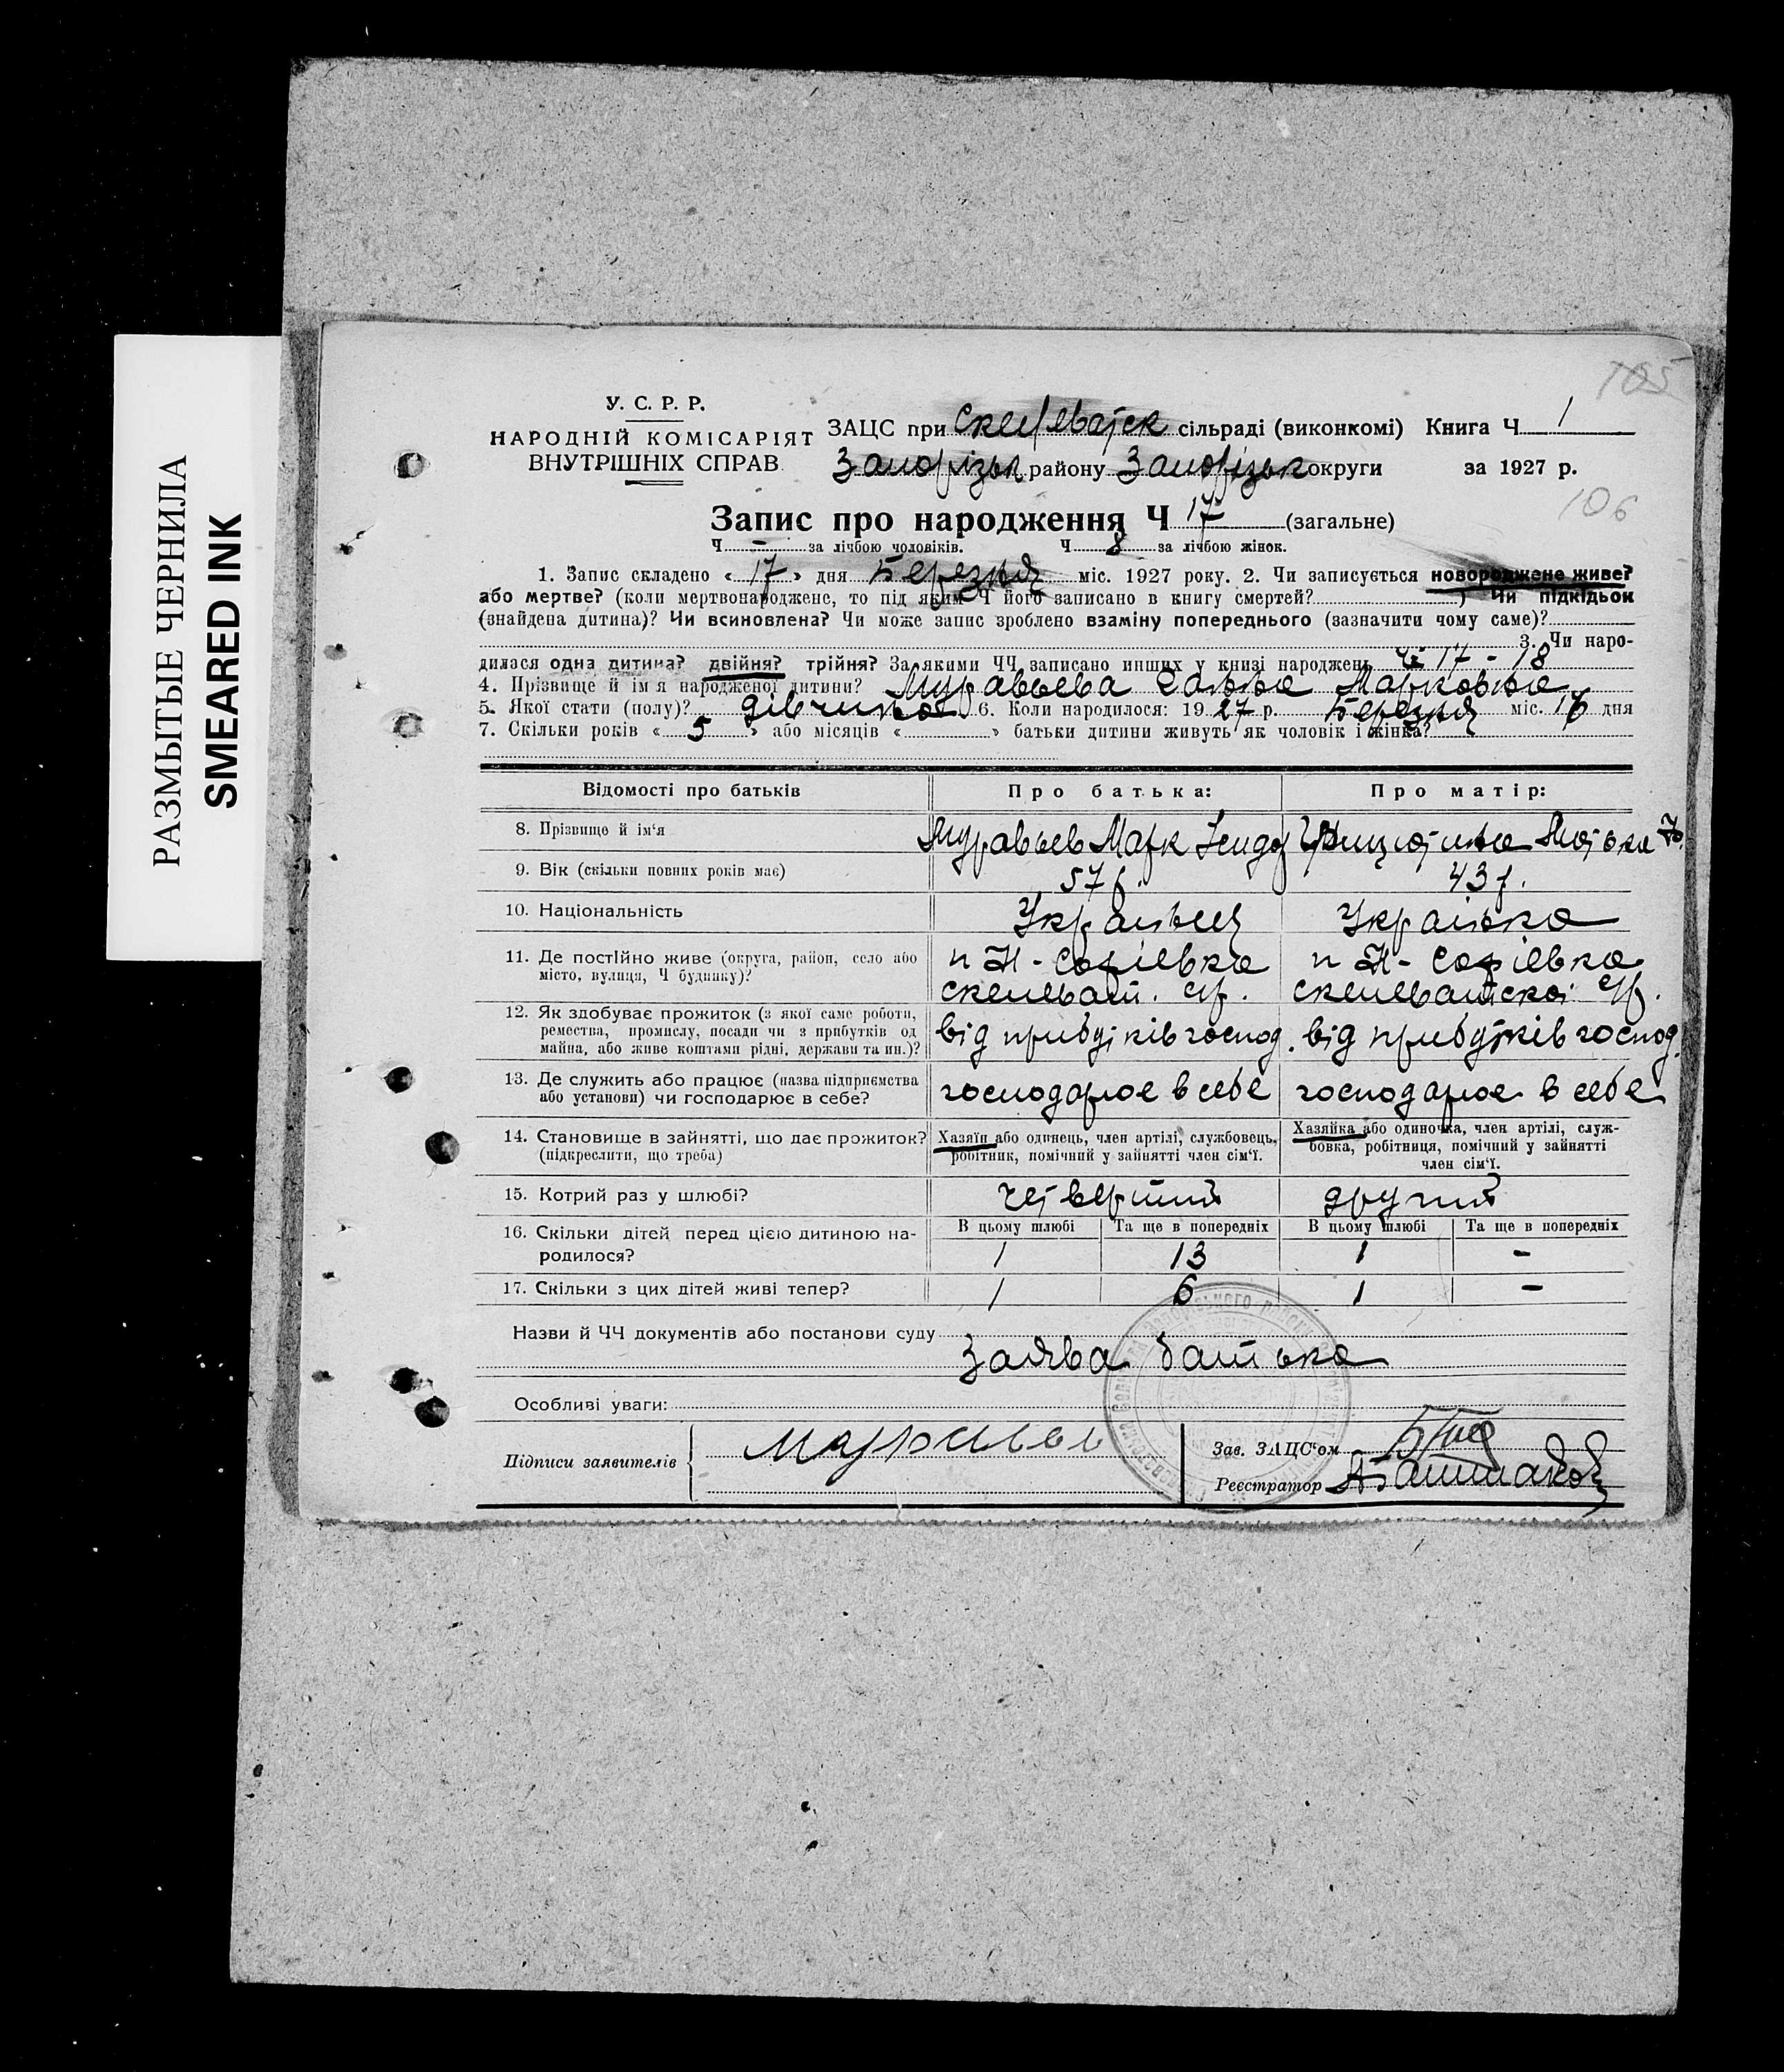 105
У. С. Р. Р.
НАРОДНІЙ КОМІСАРІЯТ
ВНУТРІШНІХ СПРАВ
ЗАЦС при Скелеватск сільраді (виконкомі) Книга Ч 1
Запоріськ району Запорізьк округи за 1927 р.
106
Запис про народження Ч 17 (загальне)
Ч - за лічбою чоловіків. Ч 8 за лічбою жінок.
1. Запис складено « 17 » дня Березня міс. 1927 року. 2. Чи записується новороджене живе?
або мертве? (коли мертвонароджене, то під яким Ч його записано в книгу смертей? ) Чи підкідьок
(знайдена дитина)? Чи всиновлена? Чи може запис зроблено взаміну попереднього (зазначити чому саме)?
3. Чи наро-
дилася одна дитина? двійня? трійня? За якими ЧЧ записано инших у книзі народжень ч 17 - 18
4. Прізвище й ім'я народженої дитини? Муравьева Ганна Марковна
5. Якої стати (полу)? дівчина 6. Коли народилося: 19 27 р. Березня міс. 16 дня
7. Скільки років « 5 » або місяців « » батьки дитини живуть як чоловік і жінка?
Відомості про батьків Про батька: Про матір:
8. Прізвище й ім'я Муравьев Марк
9. Вік (скільки повних років має) 57 р. 43 р.
10. Національність Украінец Украінка
11. Де постійно живе (округа, район, село або
місто, вулиця, Ч будинку)?
п Н-Софіевка п Н-Софіевка
скелеват. с/р. скелеватскоі с/р.
12. Як здобуває прожиток (з якої саме роботи,
ремества, промислу, посади чи з прибутків од
майна, або живе коштами рідні, держави та ин.)?
від прибутків господ. від прибутків господ.
13. Де служить або працює (назва підприємства
або установи) чи господарює в себе?
господарює в себе господарює в себе
14. Становище в зайнятті, що дає прожиток?
(підкреслити, що треба)
Хазяїн або одинець, член артілі, службовець,
робітник, помічний у зайнятті член сім'ї.
Хазяйка або одиночка, член артілі, служ-
бовка, робітниця, помічний у зайнятті
член сім'ї.
15. Котрий раз у шлюбі? четвертий другий
16. Скільки дітей перед цією дитиною на-
родилося?
В цьому шлюбі Та ще в попередніх В цьому шлюбі Та ще в попередніх
1 13 1 -
17. Скільки з цих дітей живі тепер? 1 6 1 -
Назви й ЧЧ документів або постанови суду
Заява батька
Особливі уваги:
Підписи заявителів Муравьев
Зав. ЗАЦС'ом
Реєстратор
РАЗМЫТЫЕ ЧЕРНИЛА
SMEARED INK